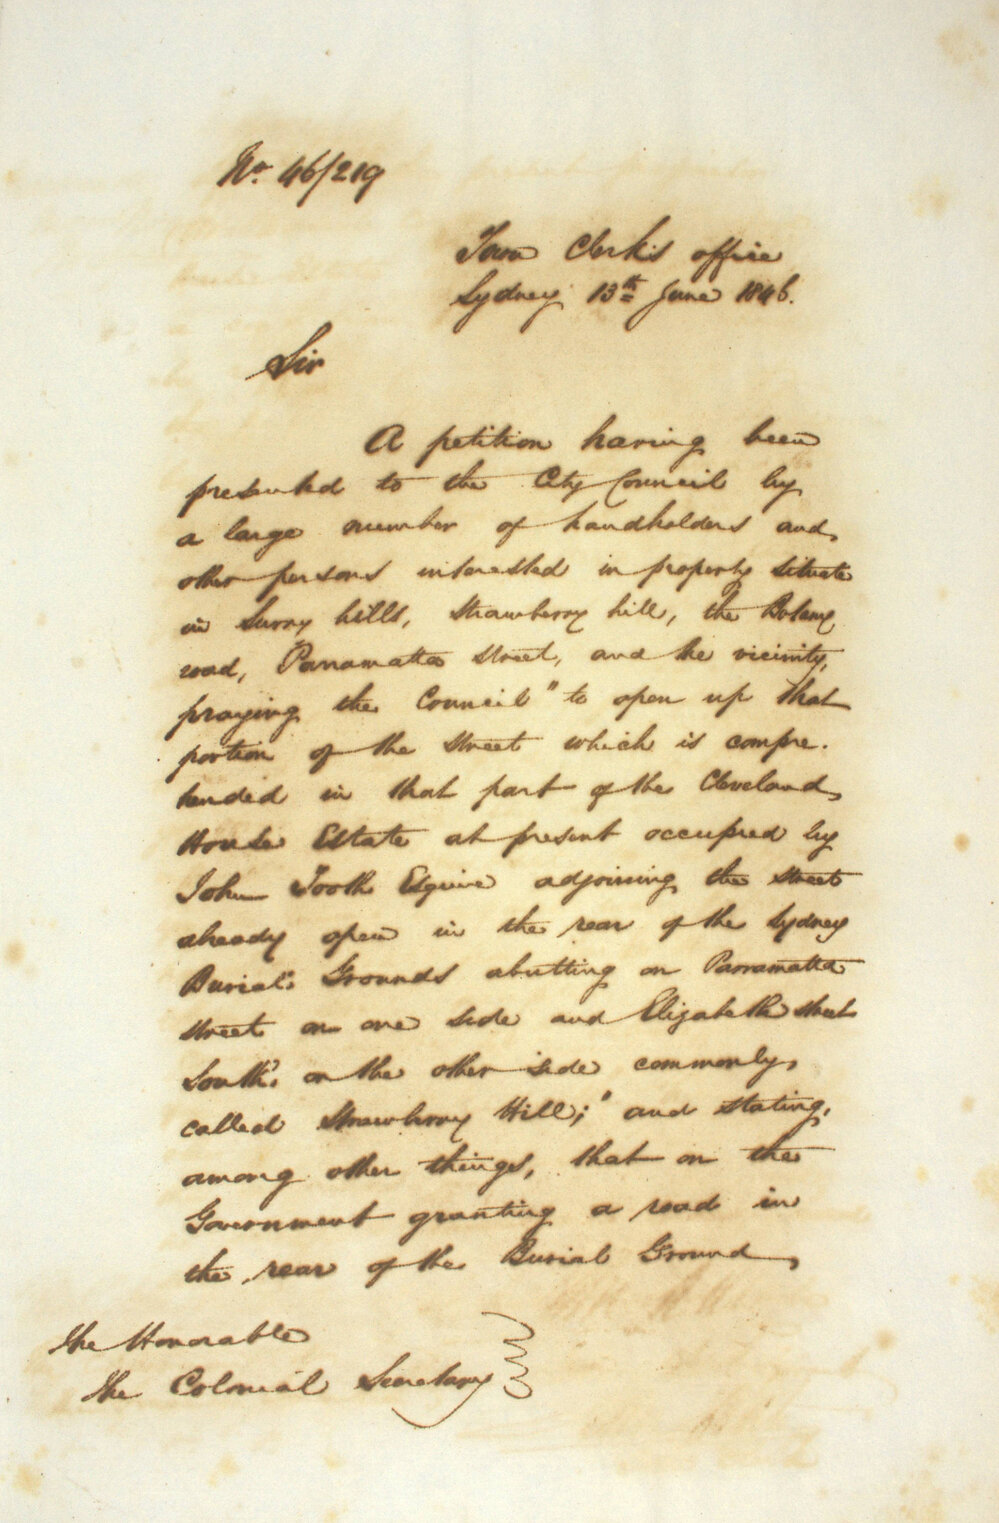 No. 46/219
Town Clerk's office
Sydney 13th June 1846.
Sir
A petition having been
presented to the City Council by
a large number of handholders and
other persons interested in property situate
in Surry hills, Strawberry hill, the Botany
road, Parramatta Street, and the vicinity,
praying the Council "to open up that
portion of the Street which is compre-
hended in that part of the Cleveland
House Estate at present occupied by
John Tooth Esquire adjoining the Street
already open in the rear of the Sydney
Burial Grounds abutting on Parramatta
Street on one side and Elizabeth Street
South on the other side commonly
called Strawberry Hill;" and stating,
among other things, that on the
Government granting a road in
the rear of the Burial Ground
The Honorable
The Colonial Secretary